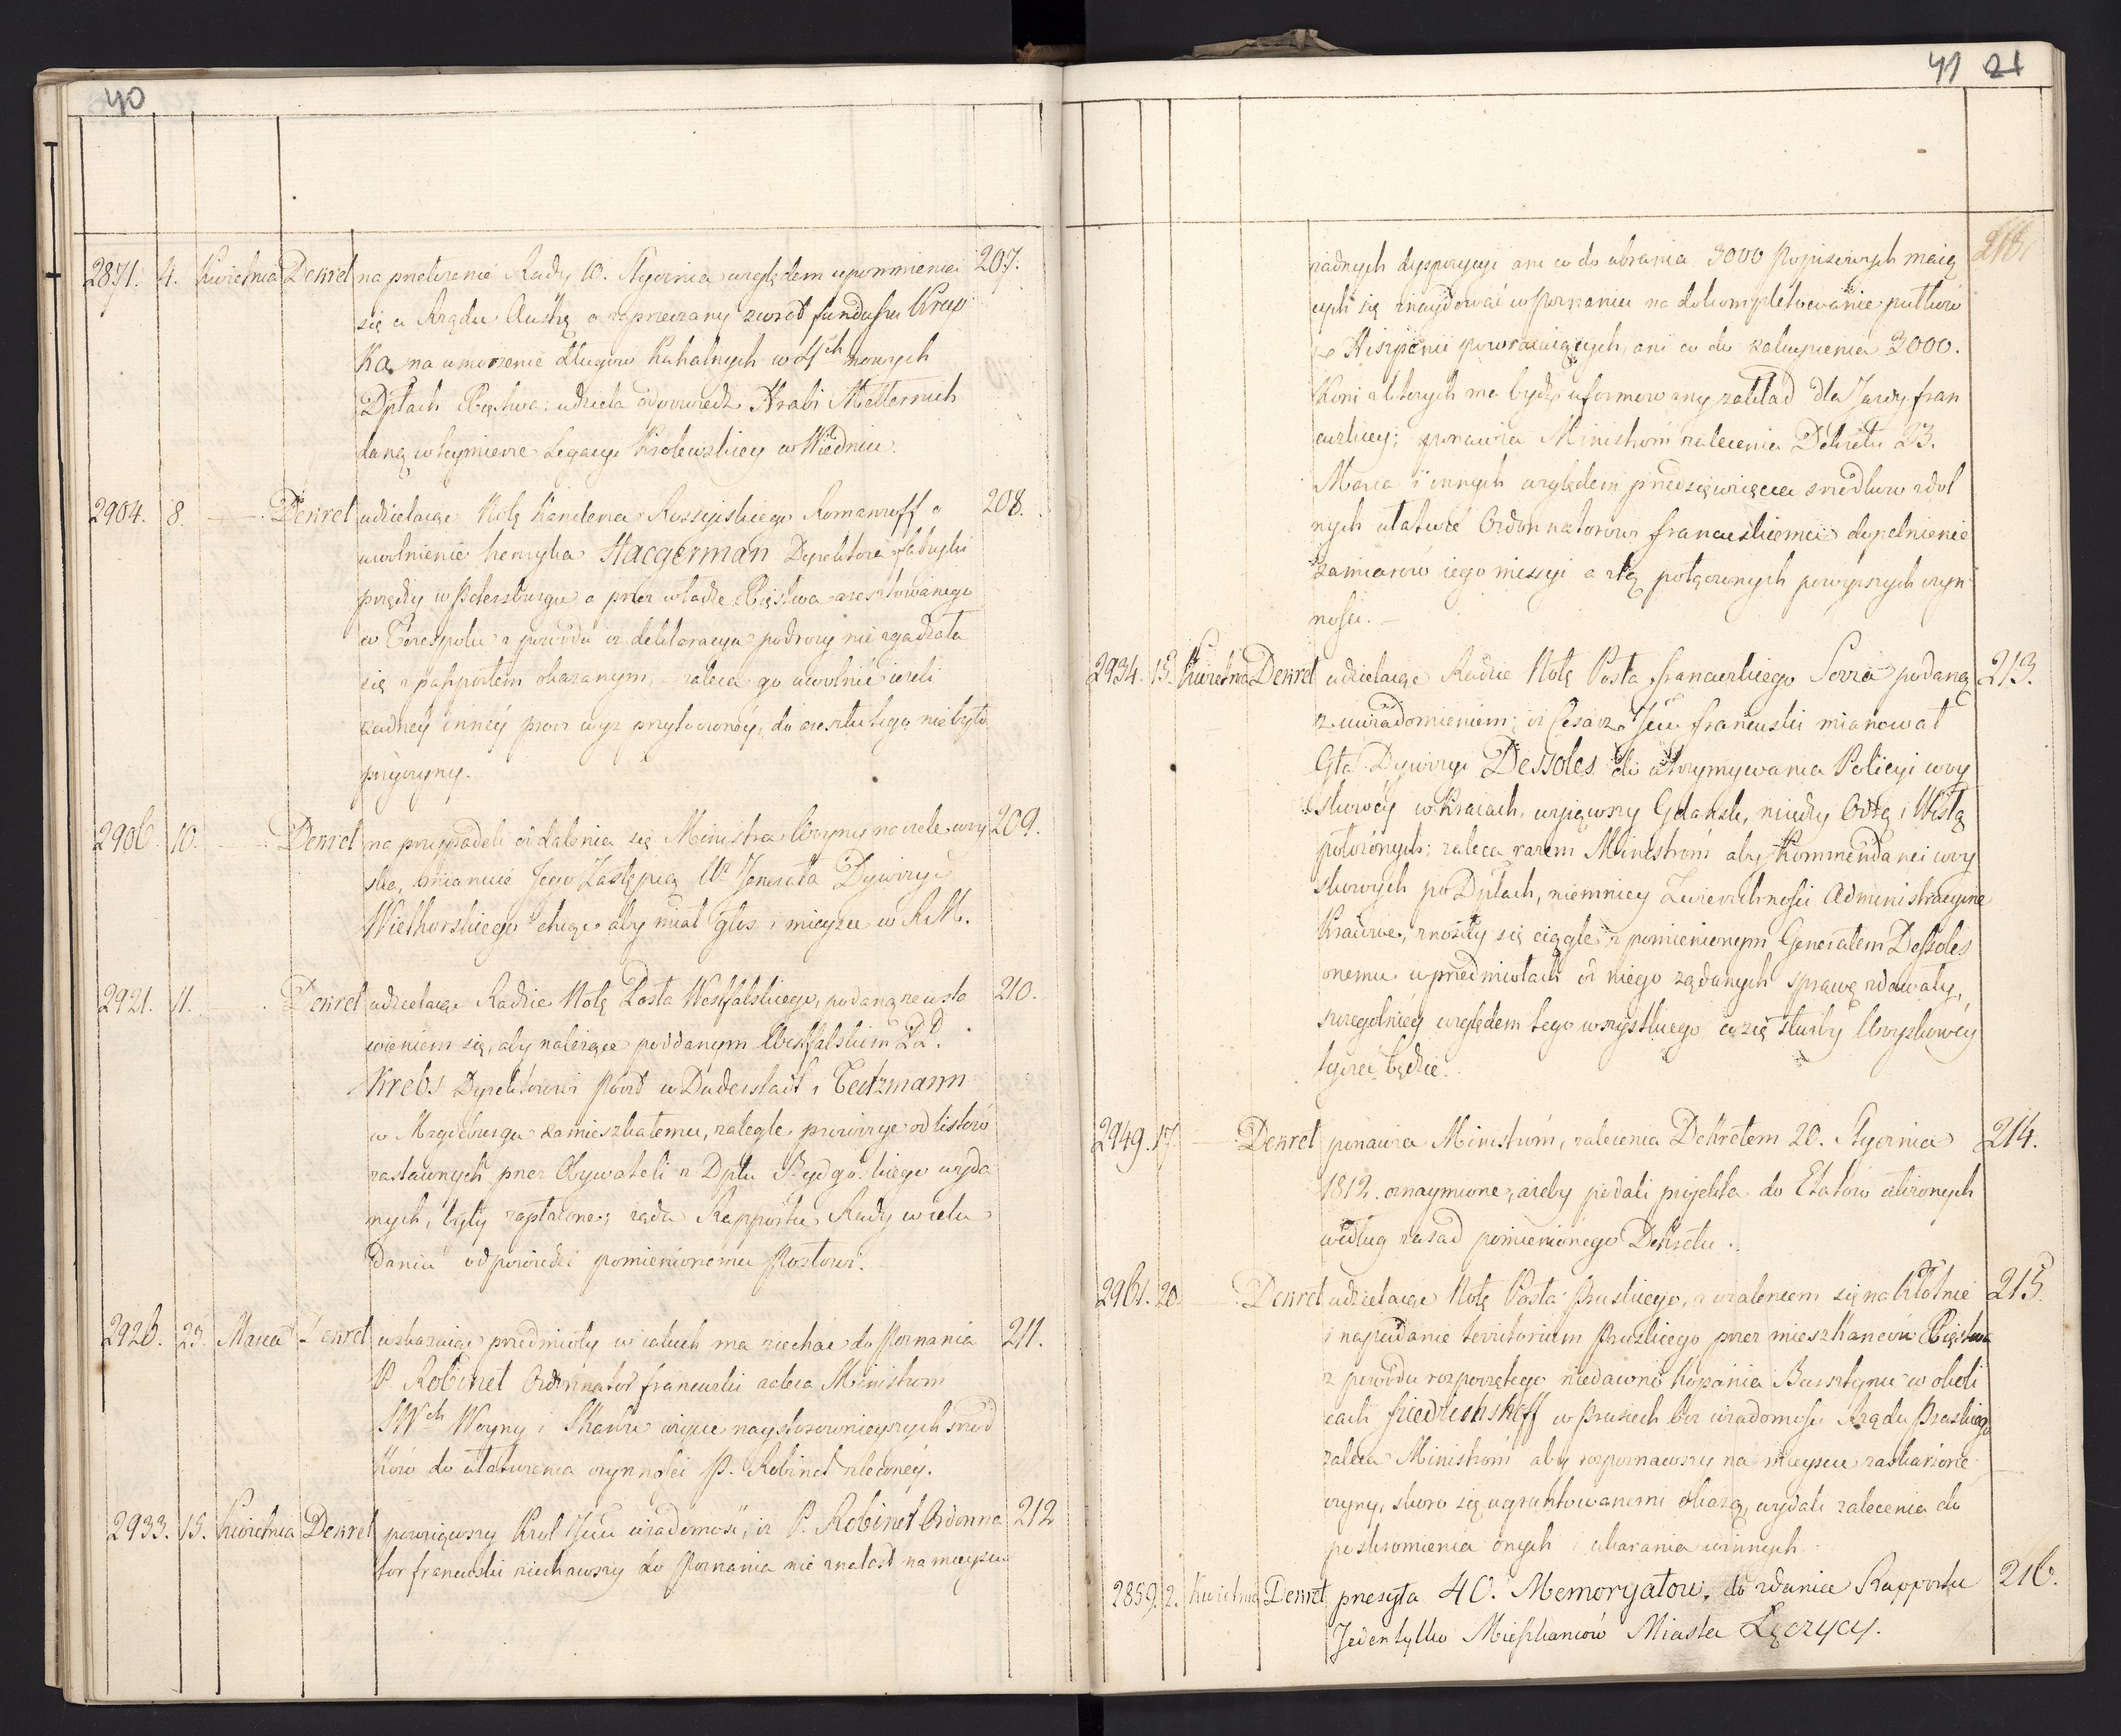 40
2871. 4. Kwietnia Dekret na przełożenie Rady 10. Stycznia względem upomnienia 207.
się u Rządu Austrę o zaprzeczany zwrot funduszu Krup
ka na umorzenie długów Kahalnych w 4ch nowych
Dptach Xięstwa: udziela odpowiedz Hrabi Metternich
daną w łeymierze Legacyi Królewskiey w Wiedniu.
2904. 8. — Dekret udzielaiąc Notę Kanclerza Rossyiskiego Romanzoff o 208.
uwolnienie henryka Haegerman Dyrektora fabryki
przędzy w Petersburgu a przez władze Xięstwa aresztowanego
w Terespolu z powodu iż deklaracya podrozy nie zgadzała
się z paszportem okazanym, – zaleca go uwolnić ieżeli
żadney inney procz wyz przytoczoney, do aresztu tego nie było
przyczyny.
2906. 10. — Dekret na przypadek oddalenia się Ministra Woyny na czele woy 209.
ska, mianuie Jego Zastępcą Ur Jenerała Dywizyi
Wielhorskiego chcąc aby miał głos i mieysce w RM.
2921. 11. — Dekret udzielaiąc Radzie Notę Posła Westfalskiego, podaną ze usta 210.
wieniem się, aby należące poddanym Westfalskim PP.
Krebs Dyrektorowi Poczt w Duderstadt i Teetzmann
w Magdeburgu zamieszkałemu, zaległe prowizye od listów
zastawnych przez Obywateli z Dptu Bydgoskiego wyda
nych, były zapłacone; żąda Rapportu Rady w celu
dania odpowiedzi pomienionemu Posłowi.
2926. 23. Marca Dekret wskazuiąc przedmioty w iakich ma ziechać do Poznania 211.
P. Robinet Ordonnator francuzki zaleca Ministrom
SWch Woyny i Skarbu użycie naystosownieyszych środ
ków do ułatwienia czynności P. Robinet zleconéy.
2933. 15. Kwietnia Dekret powziąwszy Krol Jmć wiadomość, iż P. Robinet Ordonna 212
tor francuski ziechawszy do Poznania nie znalazł na mieyscu
41 21
żadnych dyspozycyi ani co do ubrania 3000 Popisowych maią
cych się znaydować w Poznaniu na dokompletowanie pułków
z Hiszpanii powracaiących, ani co do zakupienia 3000.
Koni z ktorych ma bydź uformowany zakład dla Jazdy fran
cuzkiey; ponawia Ministrom zalecenia Dekretu 23.
Marca i innych względem przedsięwzięcia srodkow zdol
nych ułatwić Ordonnatorowi francuskiemu dopełnienie
zamiarów iego missyi a z tą połączonych powyzszych czyn
nosci.
2934. 15. Kwietnia Dekret udzielaiąc Radzie Notę Posła francuzkiego Serra podaną 213.
z uwiadomieniem; iż Cesarz Jmć francuski mianował
Gła Dywizyi Dessoles do utrzymywania Policyi woy
skowéy w Kraiach, wyiąwszy Gdansk, między Odrą i Wisłą
położonych; zaleca razem Ministrom aby Kommendanci woy
skowych po Dptach, niemniey Zwierzchności administracyine
Kraiowe, znosiły się ciągle z pomienionym Generałem Dessoles
onemu w przedmiotach od niego żądanych sprawę zdawały,
szczegolniéy względem tego wszystkiego co się służby Woyskowéy
tyczeć będzie.
2949. 17 — Dekret ponawia Ministrom, zalecenia Dekretem 20. Stycznia 214.
1812. oznaymione, ażeby podali projekta do Etatów ułożonych
według zasad pomienionego Dekretu.
2961. 20. — Dekret udzielaiąc Notę Posła Pruskiego, z użaleniem się na kłótnie 215.
i napadanie territorium Pruskiego przez mieszkanców Xięstwa
z powodu rozpoczętego niedawno kopania Bursztynu w okoli
cach friedrichshoff w Prusiech bez wiadomości Rządu Pruskiego
zaleca Ministrom aby rozpoznawszy na mieyscu zaskarżone
czyny, skoro się ugruntowanemi okażą, wydali zalecenia do
poskromienia onych i ukarania winnych.
2859. 2. Kwietnia Dekret przesyła 40. Memoryałow, do zdania Rapportu 216.
Jeden tylko Mieszkancow Miasta Łęczycy.